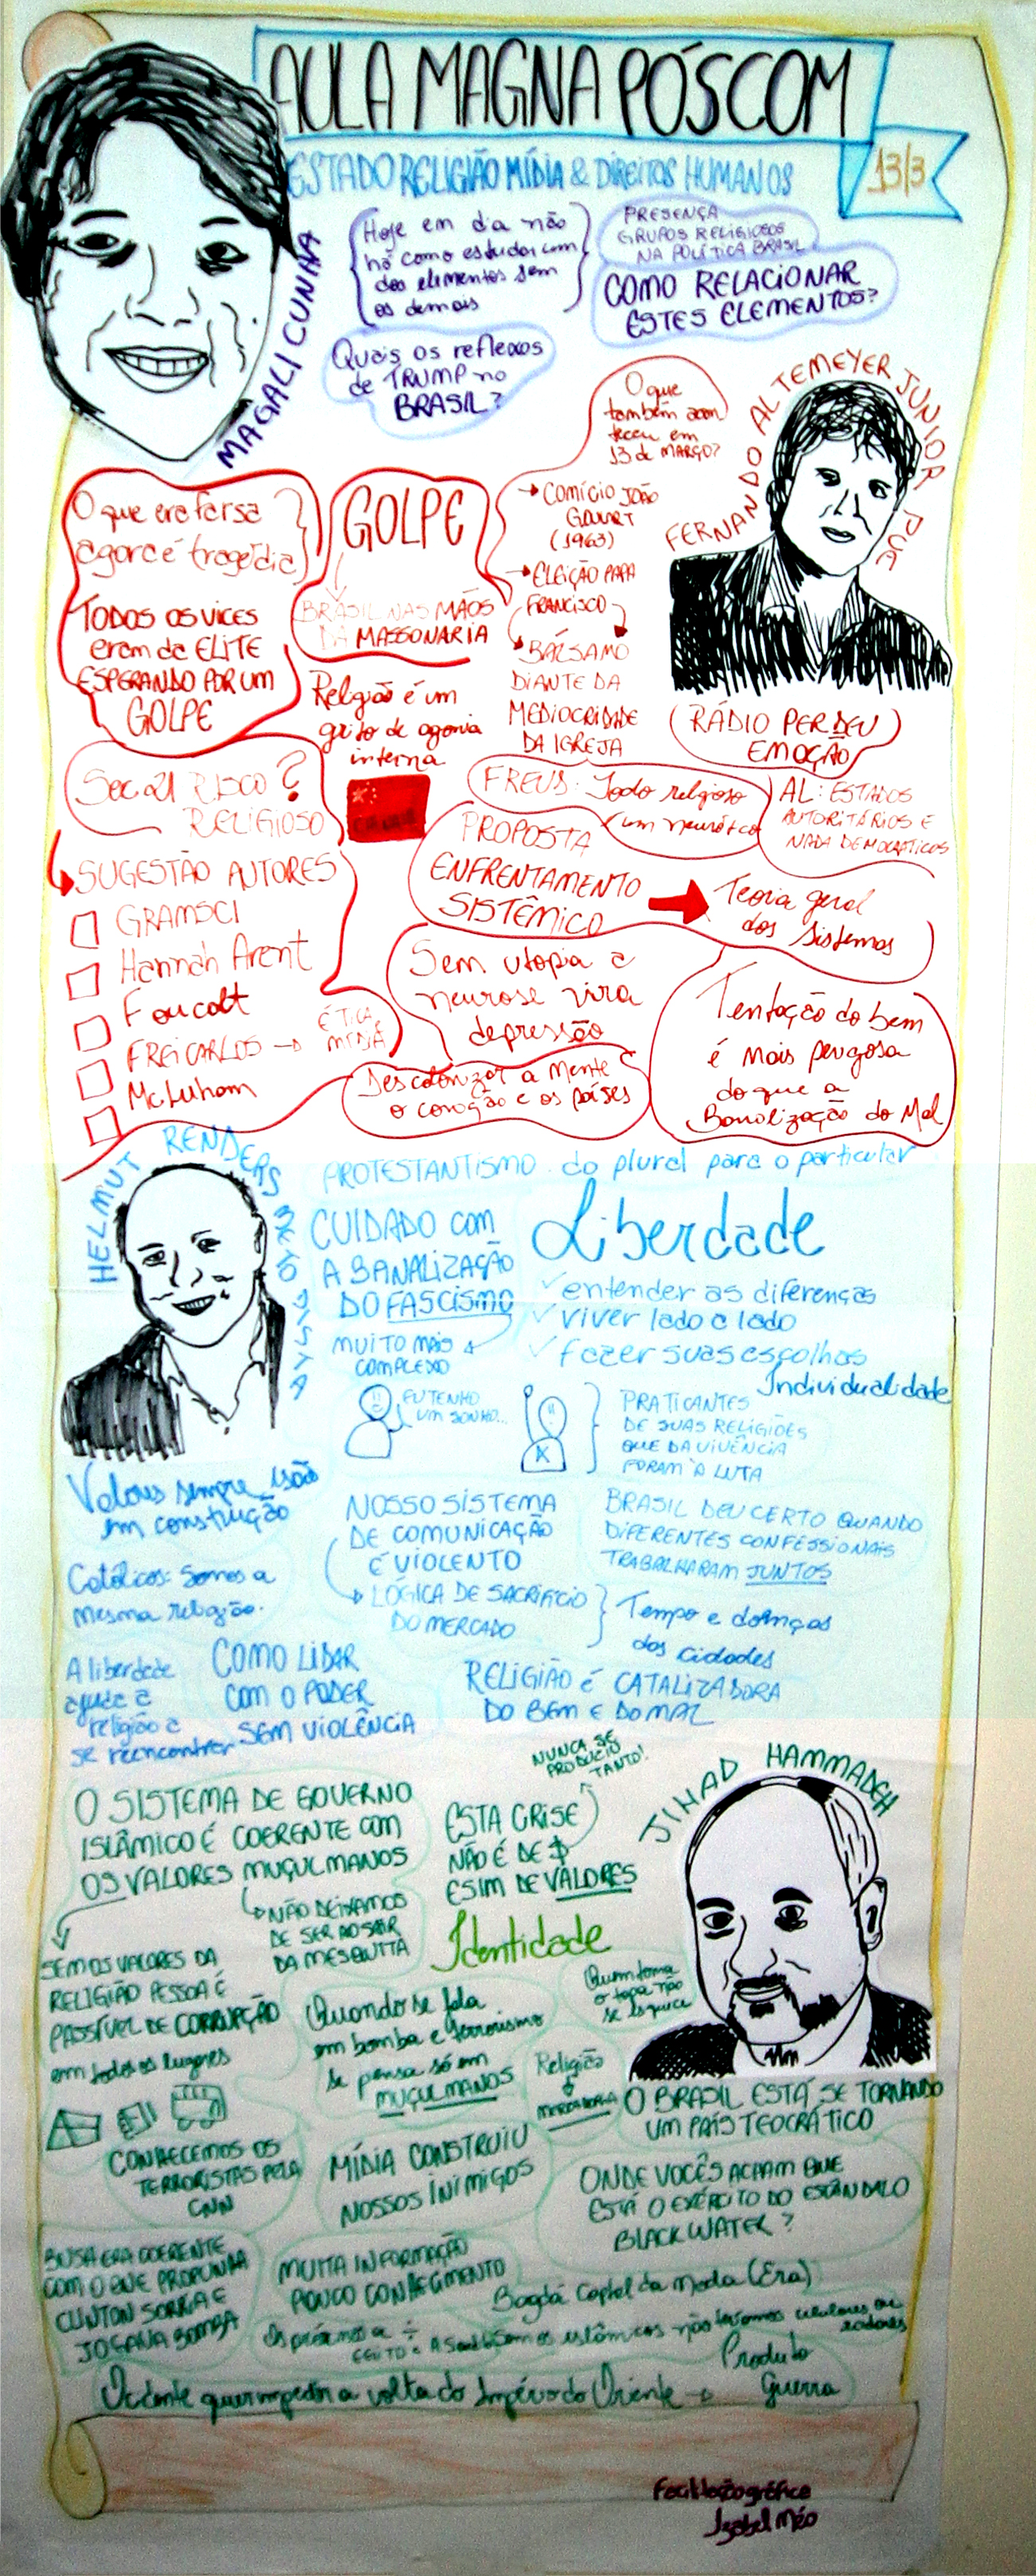 AULA MAGNA PÓSCOM
13/3
ESTADO RELIGIÃO MÍDIA & DIREITOS HUMANOS
MAGALI CUNHA
Hoje em dia não
há como estudar um
dos elementos sem
os demais
PRESENÇA
GRUPOS RELIGIOSOS
NA POLÍTICA BRASIL
COMO RELACIONAR
ESTES ELEMENTOS?
Quais os reflexos
de TRUMP no
BRASIL?
FERNANDO ALTEMEYER JUNIOR PUC
O que
também acon
teceu em
13 de MARÇO?
COMÍCIO JOÃO
GOULART
(1963)
ELEIÇÃO PAPA
FRANCISCO
BÁLSAMO
DIANTE DA
MEDIOCRIDADE
DA IGREJA
O que era farsa
agora é tragédia
TODOS OS VICES
eram da ELITE
ESPERANDO POR UM
GOLPE
GOLPE
BRASIL NAS MÃOS
DA MASSONARIA
Religião é um
grito de agonia
interna
CHINA
RÁDIO PERDEU
EMOÇÃO
Sec 21 RISCO?
RELIGIOSO
FREUS: Todo religioso
um neurótico
AL: ESTADOS
AUTORITÁRIOS E
NADA DEMOCRATICOS
PROPOSTA
ENFRENTAMENTO
SISTÊMICO
Teoria geral
dos sistemas
SUGESTÃO AUTORES
GRAMSCI
Hannah Arent
Foucalt
FREI CARLOS → ÉTICA, MÍDIA
McLuham
Sem utopia a
neurose vira
depressão
Descolonizar a mente
o coração e os países
Tentação do bem
é mais perigosa
do que a
Banalização do Mal
HELMUT RENDERS METODISTA
PROTESTANTISMO do plural para o particular
CUIDADO com
A BANALIZAÇÃO
DO FASCISMO
MUITO MAIS
COMPLEXO
Liberdade
entender as diferenças
viver lado a lado
fazer suas escolhas
Individualidade
EU TENHO
UM SONHO...
PRATICANTES
DE SUAS RELIGIÕES
QUE DA VIVÊNCIA
FORAM À LUTA
Valores sempre estão
em construção
NOSSO SISTEMA
DE COMUNICAÇÃO
É VIOLENTO
LÓGICA DE SACRIFÍCIO
DO MERCADO
Tempo e doenças
das cidades
BRASIL DEU CERTO QUANDO
DIFERENTES CONFESSIONAIS
TRABALHARAM JUNTOS
Católicos: somos a
mesma religião.
A liberdade
ajuda a
religião a
se reencontrar
COMO LIDAR
COM O PODER
SEM VIOLÊNCIA
RELIGIÃO É CATALIZADORA
DO BEM E DO MAL
JIHAD HAMMADEH
O SISTEMA DE GOVERNO
ISLÂMICO É COERENTE COM
OS VALORES MUÇULMANOS
NÃO DEIXAMOS
DE SER AO SAIR
DA MESQUITA
NUNCA SE
PRODUZIU
TANTO!
ESTA CRISE
NÃO É DE $
E SIM DE VALORES
Identidade
SEM OS VALORES DA
RELIGIÃO PESSOA É
PASSÍVEL DE CORRUPÇÃO
em todos os lugares
Quando se fala
em bomba e terrorismo
se pensa só em
MUÇULMANOS
Quem toma
o tapa não
se esquece
Religião
MERCADORIA
O BRASIL ESTÁ SE TORNANDO
UM PAÍS TEOCRÁTICO
CONHECEMOS OS
TERRORISTAS PELA
CNN
MÍDIA CONSTRUIU
NOSSOS INIMIGOS
ONDE VOCÊS ACHAM QUE
ESTÁ O EXÉRCITO DO ESCÂNDALO
BLACK WATER?
BUSH ERA COERENTE
COM O QUE PROPUNHA
CLINTON SORRIA E
JOGAVA BOMBA
MUITA INFORMAÇÃO
POUCO CONHECIMENTO
Bagdá Capital da Moda (Era)
Sem os islâmicos não teríamos celulares ou
Ocidente quer impedir a volta do Império do Oriente →
Produto
Guerra
Facilitação gráfica
Izabel Méo